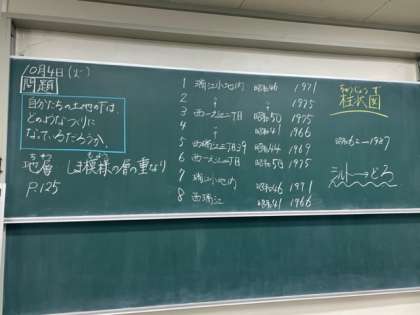 10月4日(火)
問題
自分たちの土地の下は、
どのようなつくりに
なっているだろうか。
ちそう もよう
地層 しま模様の層の重なり
P.125
1 瑞江小地内 昭和46 1971
2 〃 〃 1975
3 西一之江二丁目 昭和50 1975
4 〃 昭和41 1966
5 西瑞江 昭和44 1969
6 西一之江二丁目 昭和50 1975
7 瑞江小地内 昭和46 1971
8 西瑞江 昭和41 1966
ちゅうじょうず
柱状図
昭和62―1987
シルト→どろ